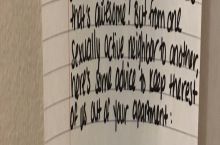 that's awesome! But from one
sexually active neighbor to another
here's some advice to keep the rest
of us out of your apartment: